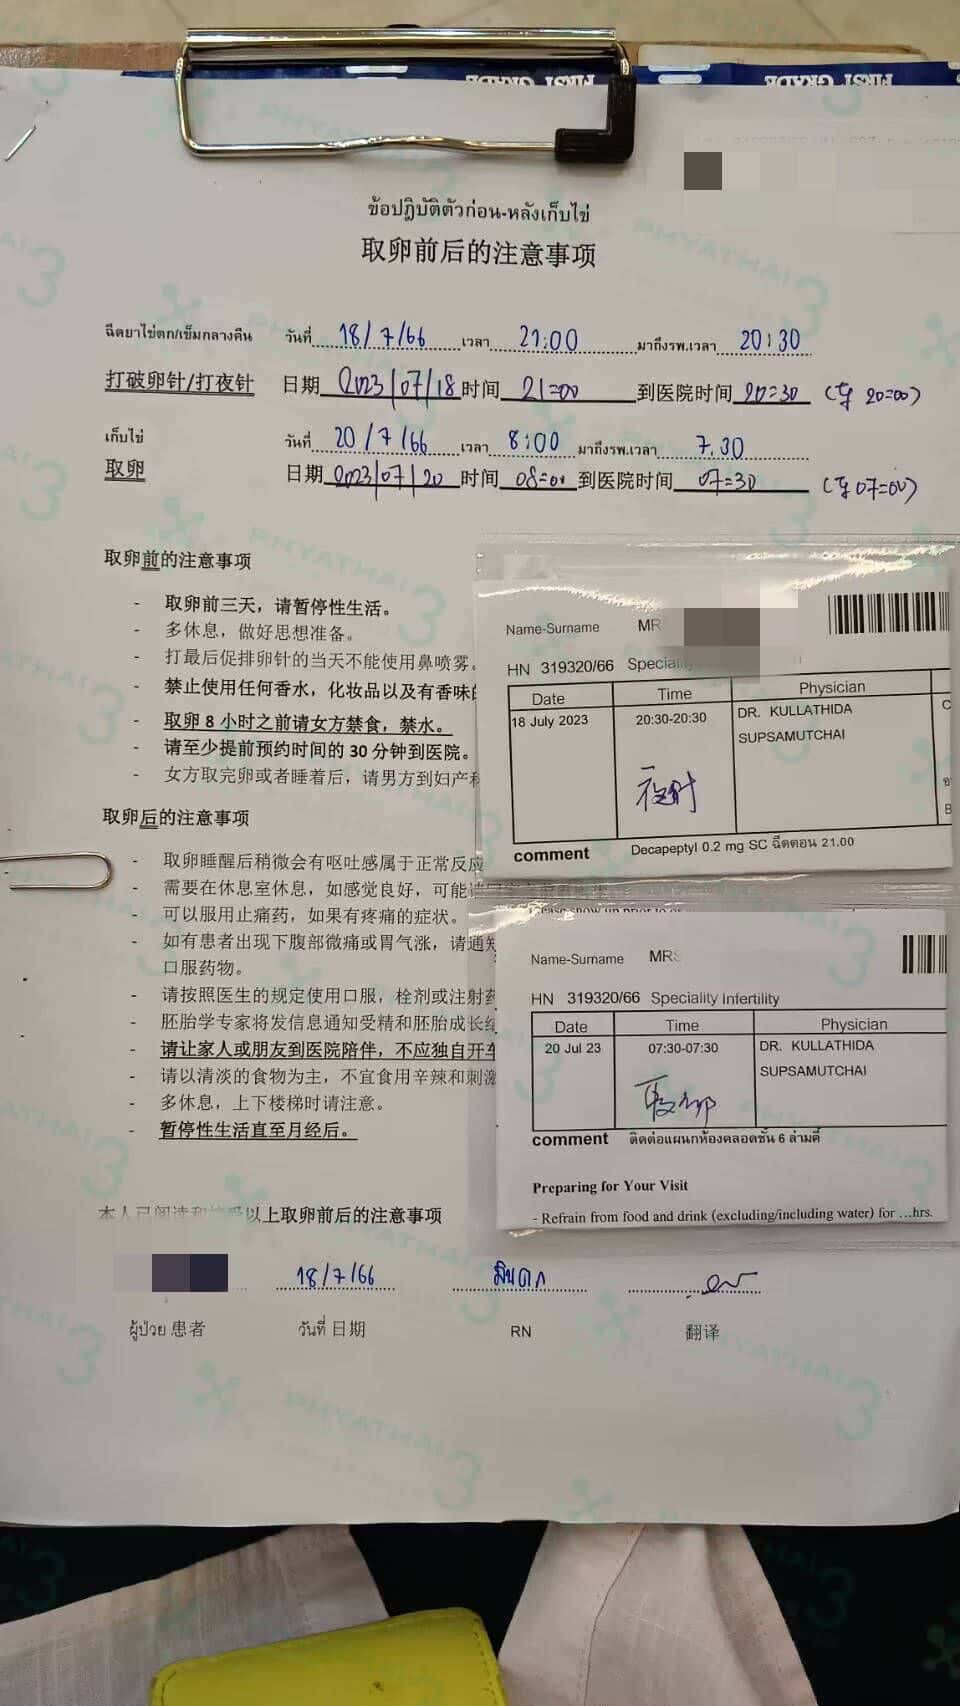 FIRST GRADE
FIRST GRADE
ข้อปฏิบัติตัวก่อน-หลังเก็บไข่
取卵前后的注意事项
ฉีดยาไข่ตก/เข็มกลางคืน วันที่ 18/7/66 เวลา 21:00 มาถึงรพ.เวลา 20:30
打破卵针/打夜针 日期 2023/07/18 时间 21=00 到医院时间 20=30 (รถ 20=00)
เก็บไข่ วันที่ 20/7/66 เวลา 8:00 มาถึงรพ.เวลา 7.30
取卵 日期 2023/07/20 时间 08=00 到医院时间 07=30 (รถ 07=00)
取卵前的注意事项
- 取卵前三天，请暂停性生活。
- 多休息，做好思想准备。
- 打最后促排卵针的当天不能使用鼻喷雾。
- 禁止使用任何香水，化妆品以及有香味的
- 取卵 8 小时之前请女方禁食，禁水。
- 请至少提前预约时间的 30 分钟到医院。
- 女方取完卵或者睡着后，请男方到妇产科
取卵后的注意事项
- 取卵睡醒后稍微会有呕吐感属于正常反应
- 需要在休息室休息，如感觉良好，可能
- 可以服用止痛药，如果有疼痛的症状。
- 如有患者出现下腹部微痛或胃气涨，请通知
口服药物。
- 请按照医生的规定使用口服，栓剂或注射药
- 胚胎学专家将发信息通知受精和胚胎成长结
- 请让家人或朋友到医院陪伴，不应独自开车
- 请以清淡的食物为主，不宜食用辛辣和刺激
- 多休息，上下楼梯时请注意。
- 暂停性生活直至月经后。
本人已阅读和接受以上取卵前后的注意事项
18/7/66
ผู้ป่วย 患者 วันที่ 日期 RN 翻译
Name-Surname MR
HN 319320/66 Speciality
Date Time Physician
18 July 2023 20:30-20:30 DR. KULLATHIDA
SUPSAMUTCHAI
夜针
comment Decapeptyl 0.2 mg SC ฉีดตอน 21.00
Name-Surname MRS
HN 319320/66 Speciality Infertility
Date Time Physician
20 Jul 23 07:30-07:30 DR. KULLATHIDA
SUPSAMUTCHAI
取卵
comment ติดต่อแผนกห้องคลอดชั้น 6 ล่ามคี่
Preparing for Your Visit
- Refrain from food and drink (excluding/including water) for ...hrs.
PHYATHAI 3